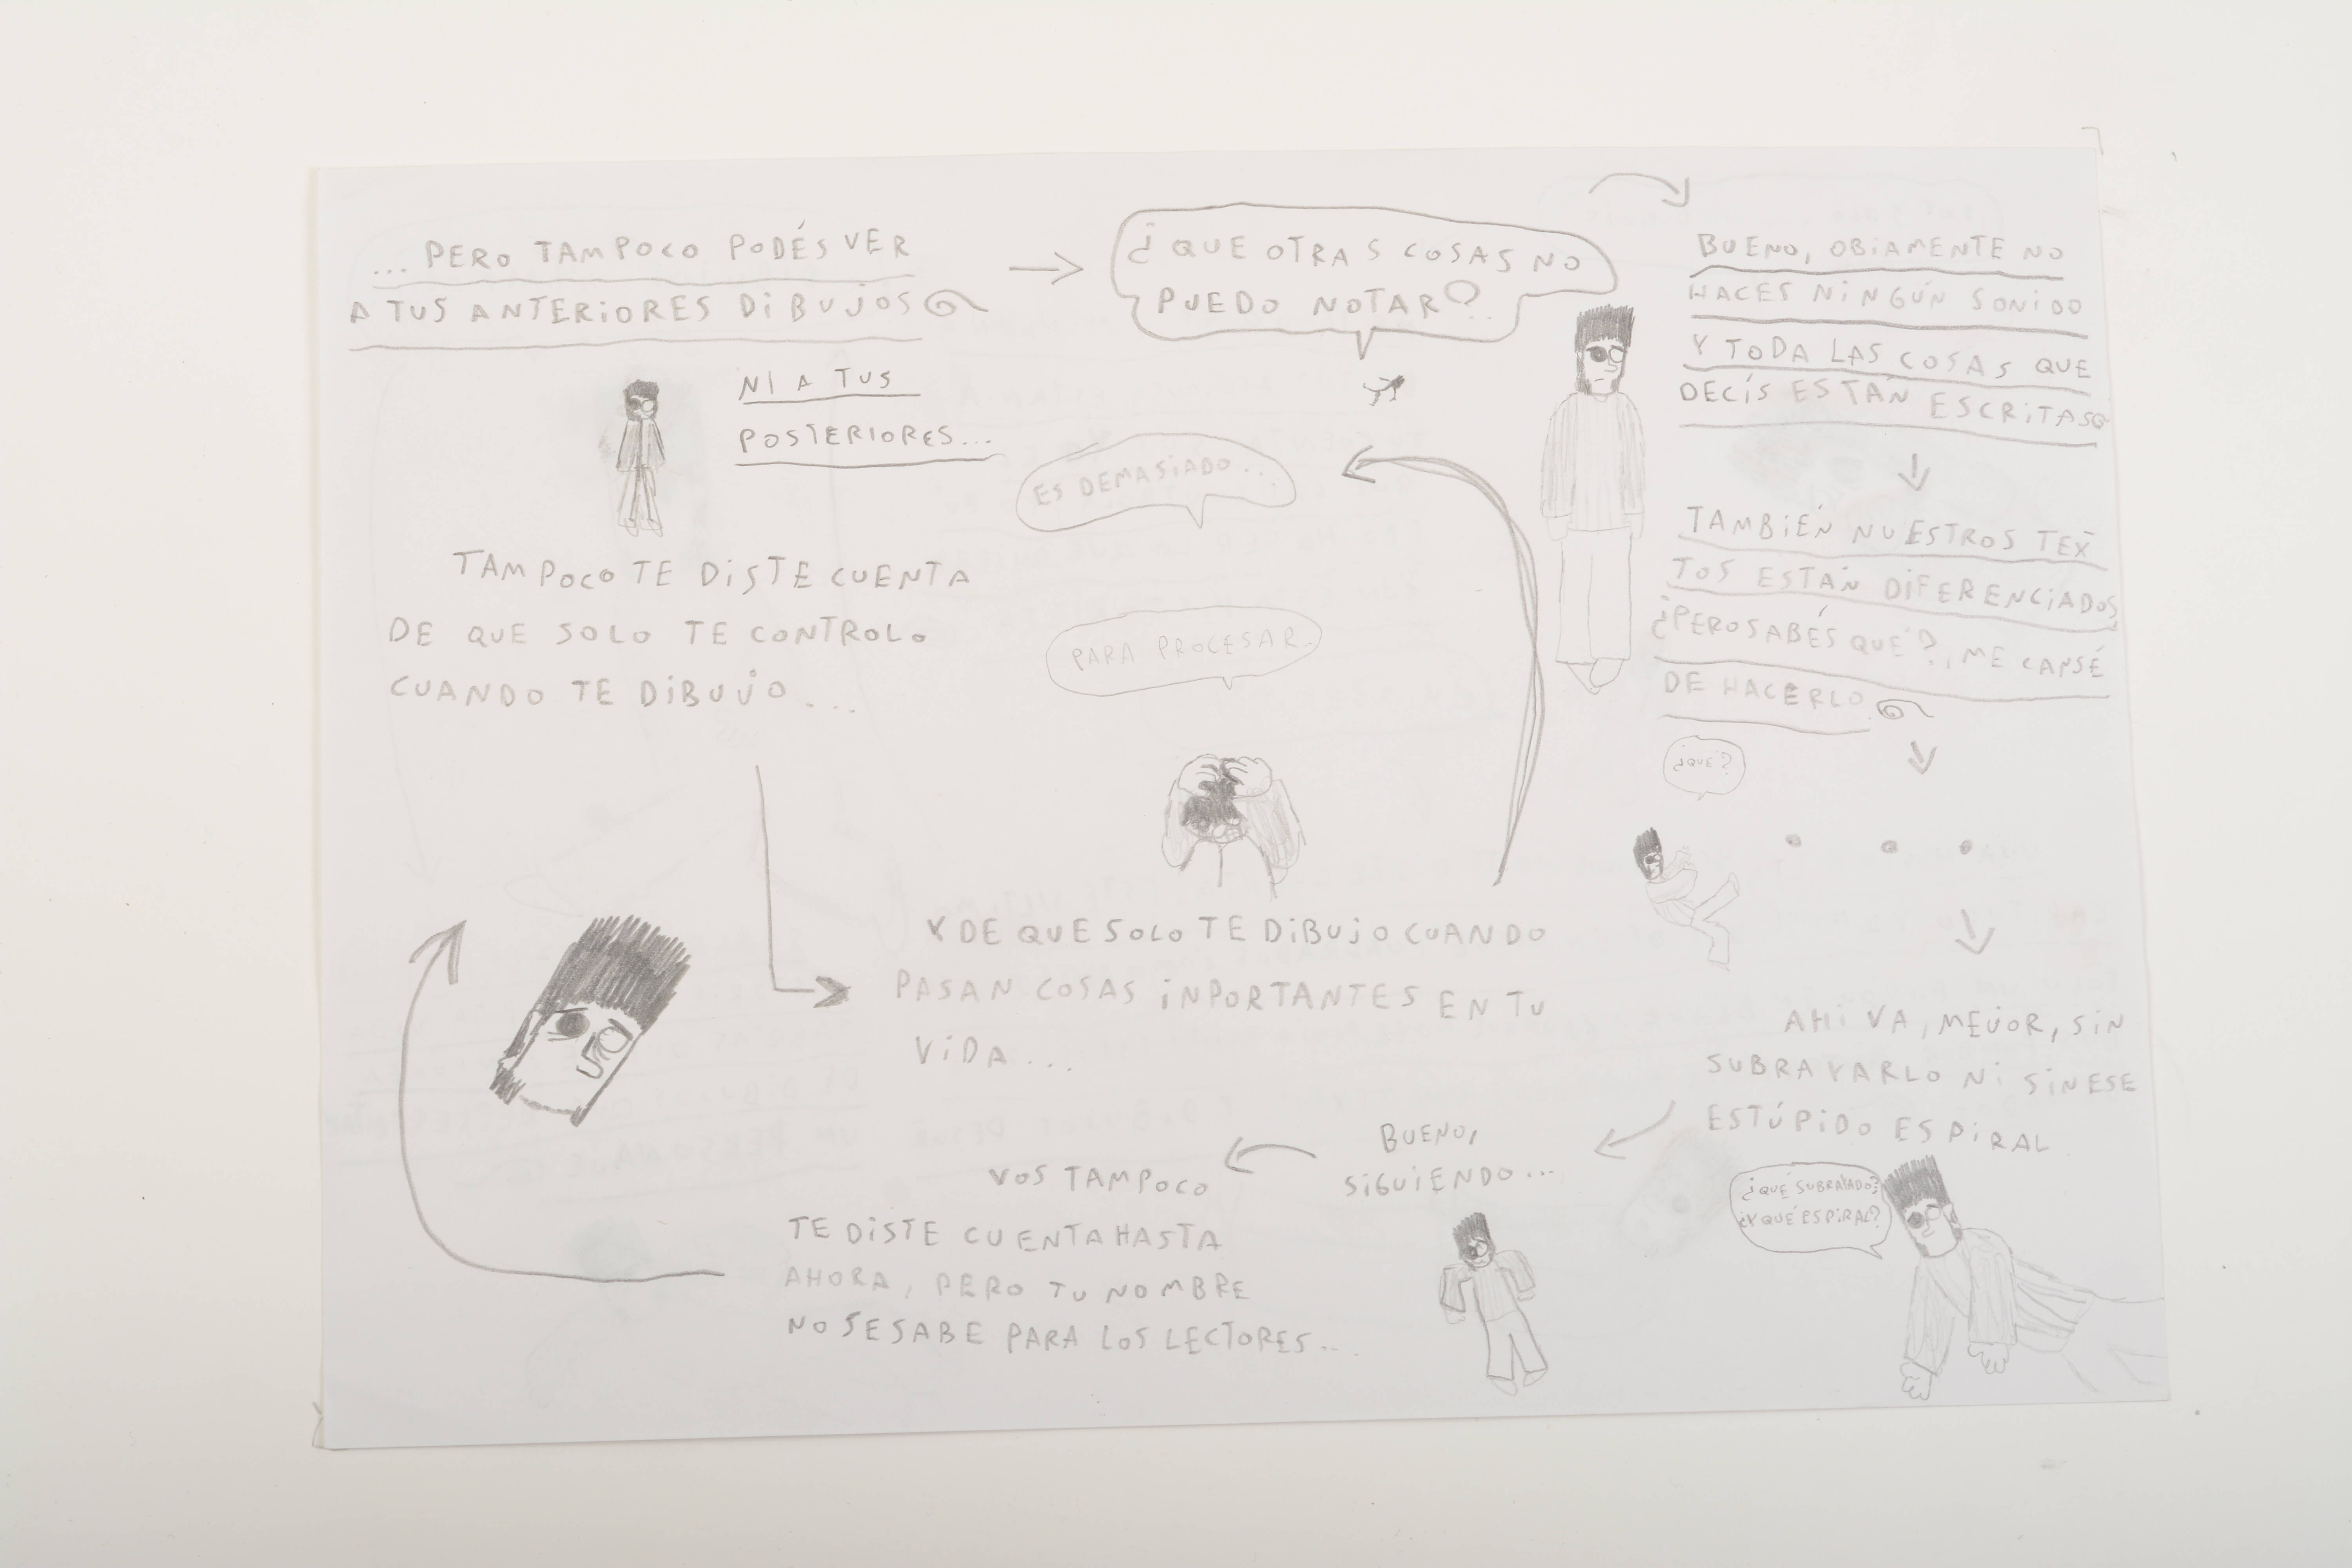 ... PERO TAMPOCO PODÉS VER
A TUS ANTERIORES DIBUJOS
NI A TUS
POSTERIORES...
¿QUE OTRAS COSAS NO
PUEDO NOTAR?
BUENO, OBIAMENTE NO
HACES NINGÚN SONIDO
Y TODA LAS COSAS QUE
DECÍS ESTÁN ESCRITAS
TAMBIÉN NUESTROS TEX
TOS ESTÁN DIFERENCIADOS,
¿PERO SABÉS QUÉ?, ME CANSÉ
DE HACERLO
¿QUE?
. . .
AHI VA, MEJOR, SIN
SUBRAYARLO NI SIN ESE
ESTÚPIDO ESPIRAL
¿QUÉ SUBRAYADO?
¿Y QUÉ ESPIRAL?
BUENO,
SIGUIENDO...
VOS TAMPOCO
TE DISTE CUENTA HASTA
AHORA, PERO TU NOMBRE
NO SE SABE PARA LOS LECTORES...
TAMPOCO TE DISTE CUENTA
DE QUE SOLO TE CONTROLO
CUANDO TE DIBUJO...
Y DE QUE SOLO TE DIBUJO CUANDO
PASAN COSAS INPORTANTES EN TU
VIDA...
ES DEMASIADO...
PARA PROCESAR.